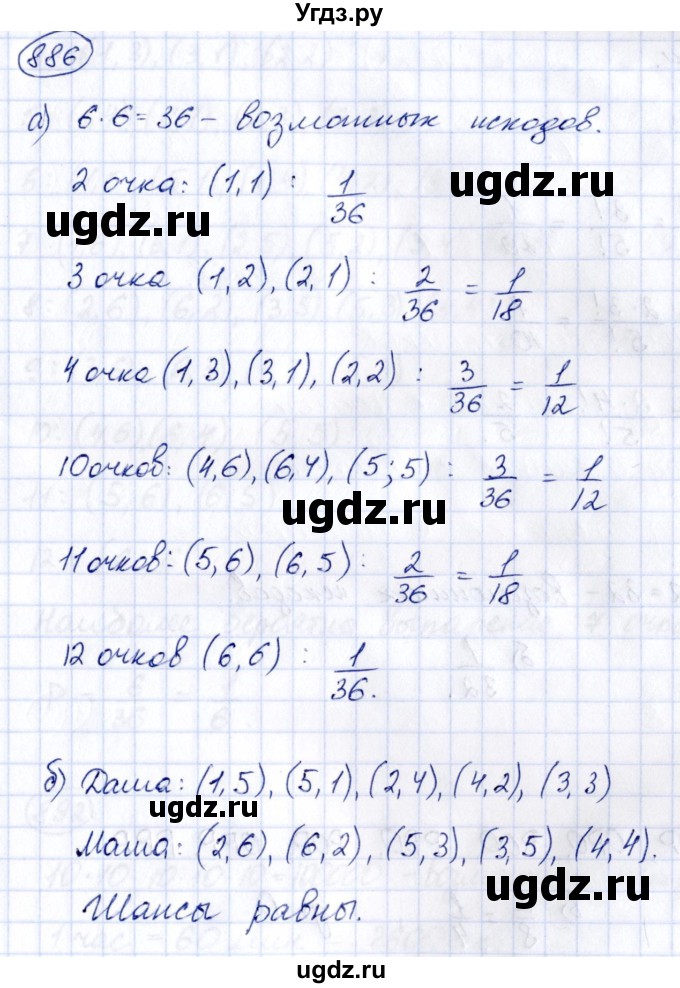 Угдз.ру
886
а) 6·6=36 – возможных исходов.
2 очка: (1,1) : 1/36
ugdz.ru
ugdz.ru
3 очка (1,2), (2,1) : 2/36 = 1/18
4 очка (1,3), (3,1), (2,2) : 3/36 = 1/12
10 очков: (4,6), (6,4), (5;5) : 3/36 = 1/12
ugdz.ru
11 очков: (5,6), (6,5) : 2/36 = 1/18
12 очков (6,6) : 1/36.
б) Даша: (1,5), (5,1), (2,4), (4,2), (3,3)
ugdz.ru
Маша: (2,6), (6,2), (5,3), (3,5), (4,4).
Шансы равны.
ugdz.ru